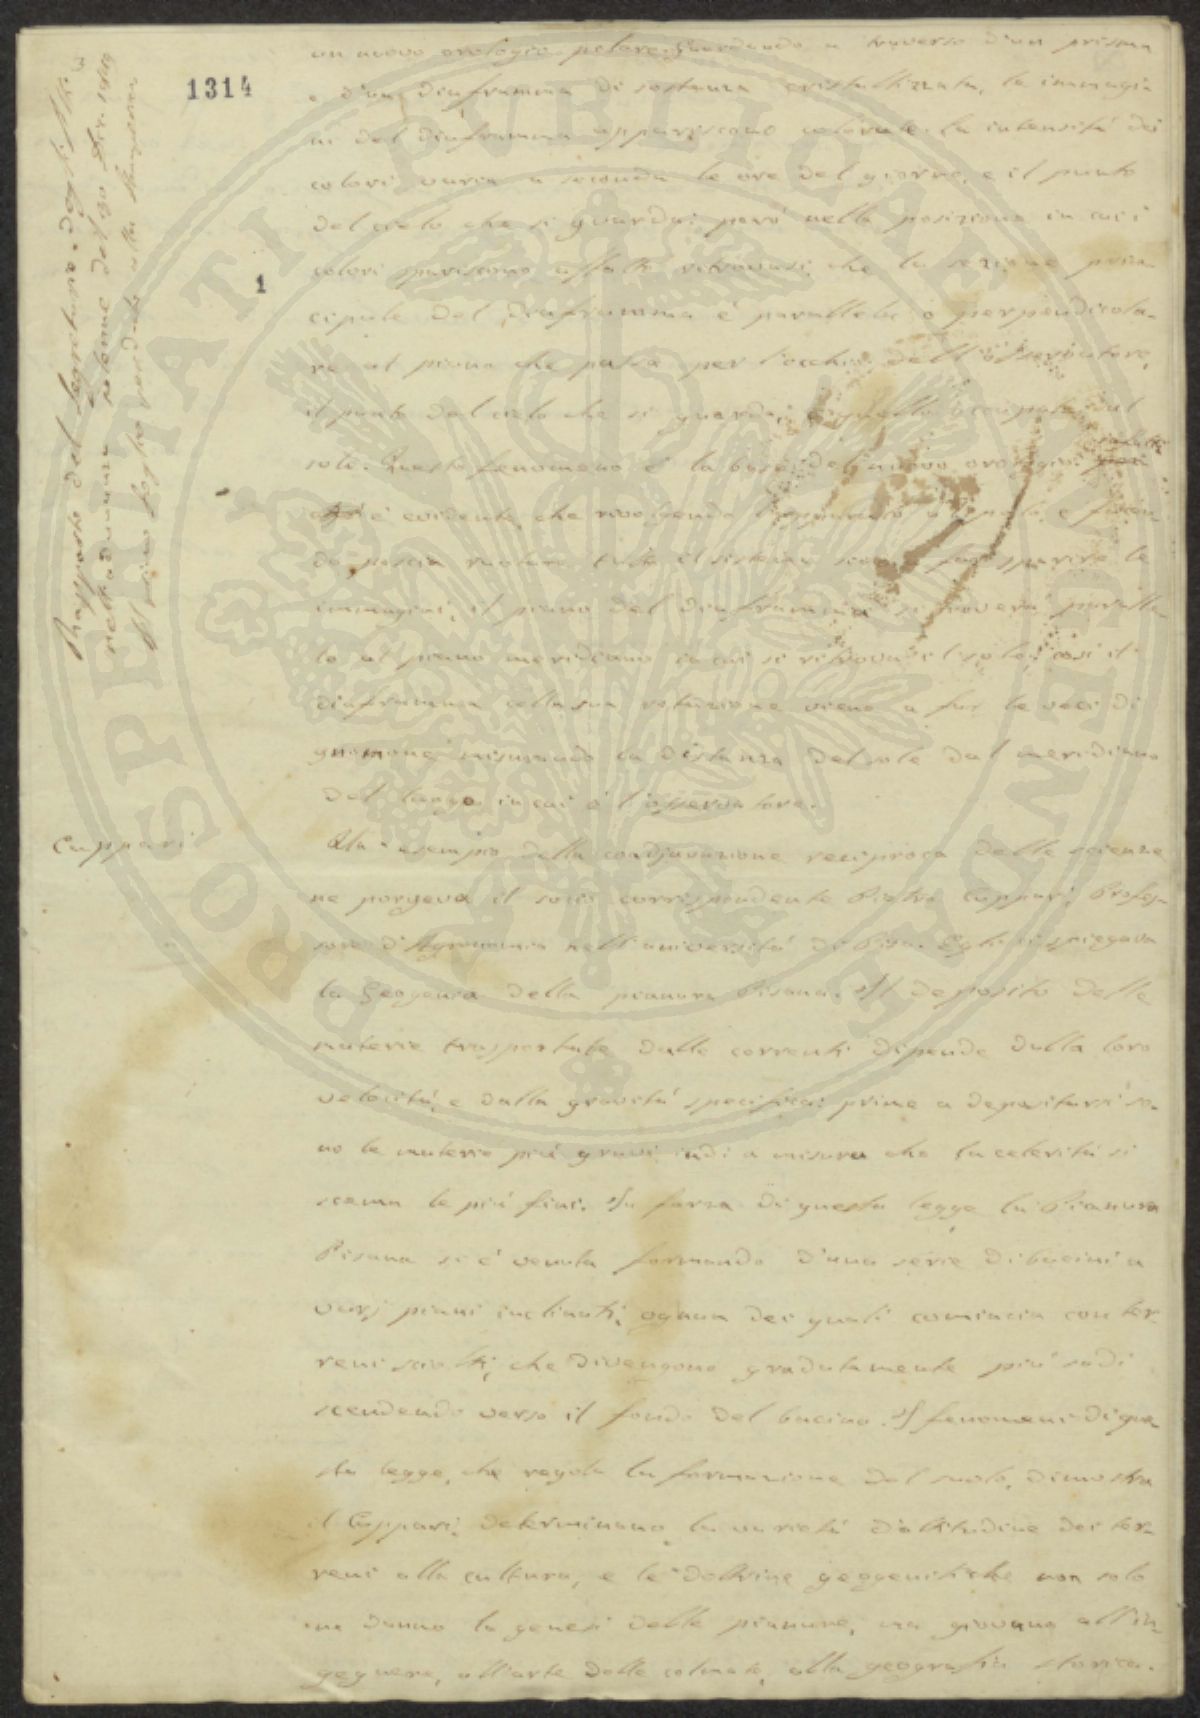 1314
1
Rapporto del Segretario degli Atti
nell'adunanza solenne del 30 Dic. 1849
Il primo foglio
un nuovo orologio polare. Guardando a traverso d'un prisma
e d'un diaframma di sostanza cristallizzata, le immagi-
ni del diaframma appariscono colorate. La intensità dei
colori varia a seconda le ore del giorno, e il punto
del cielo che si guarda; però nella posizione in cui i
colori spariscono affatto ritrovasi che la sezione prin-
cipale del diaframma è parallela o perpendicola-
re al piano che passa per l'occhio dell'osservatore,
il punto del cielo che si guarda, e quello occupato dal
sole. Questo fenomeno è la base del nuovo orologio.
è evidente, che rivolgendo l'apparato al polo, e facen-
do poscia ruotare tutto il sistema sino a far sparire le
immagini, il piano del diaframma si troverà paralle-
lo al piano meridiano in cui si ritrova il sole; così il
diaframma colla sua rotazione viene a far le veci di
gnomone misurando la distanza del sole dal meridiano
del luogo in cui è l'osservatore.
Cuppari
Un esempio della coadjuvazione reciproca delle scienze
ne porgeva il socio corrispondente Pietro Cuppari Profes-
sore di Agronomia nell'università di Pisa. Egli ci spiegava
la Geogenia della pianura Pisana. Il deposito delle
materie trasportate dalle correnti dipende dalla loro
velocità, e dalla gravità specifica: prime a depositarsi so-
no le materie più gravi indi a misura che la celerità si
scema le più fini. In forza di questa legge la Pianura
Pisana si è venuta formando d'una serie di bacini a
varj piani inclinati, ognun dei quali comincia con ter-
reni sciolti, che divengono gradatamente più sodi
scendendo verso il fondo del bacino. I fenomeni di que-
sta legge, che regola la formazione del suolo, dimostra
il Cuppari, determinano la varietà d'attitudine dei ter-
reni alla cultura, e le dottrine geogenistiche non solo
ne danno la genesi delle pianure, ma giovano all'in-
gegnere, all'arte delle colmate, alla geografia storica.